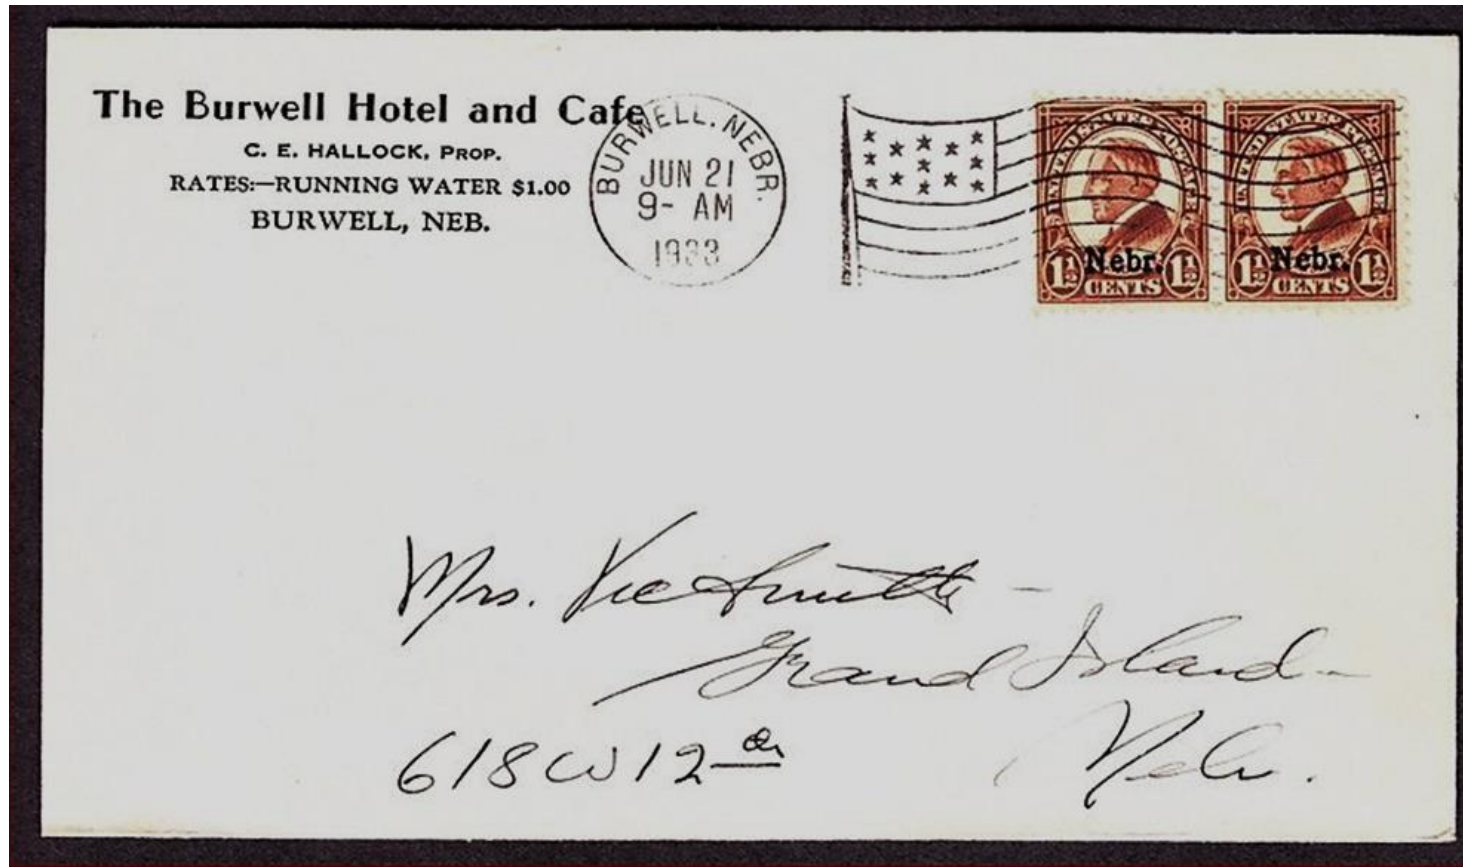 The Burwell Hotel and Cafe
C. E. HALLOCK, PROP.
RATES:—RUNNING WATER $1.00
BURWELL, NEB.
BURWELL, NEBR.
JUN 21
9- AM
1933
UNITED STATES POSTAGE
Nebr.
1½ CENTS 1½
UNITED STATES POSTAGE
Nebr.
1½ CENTS 1½
Mrs. Vic Smith -
Grand Island -
618 W 12th
Nebr.